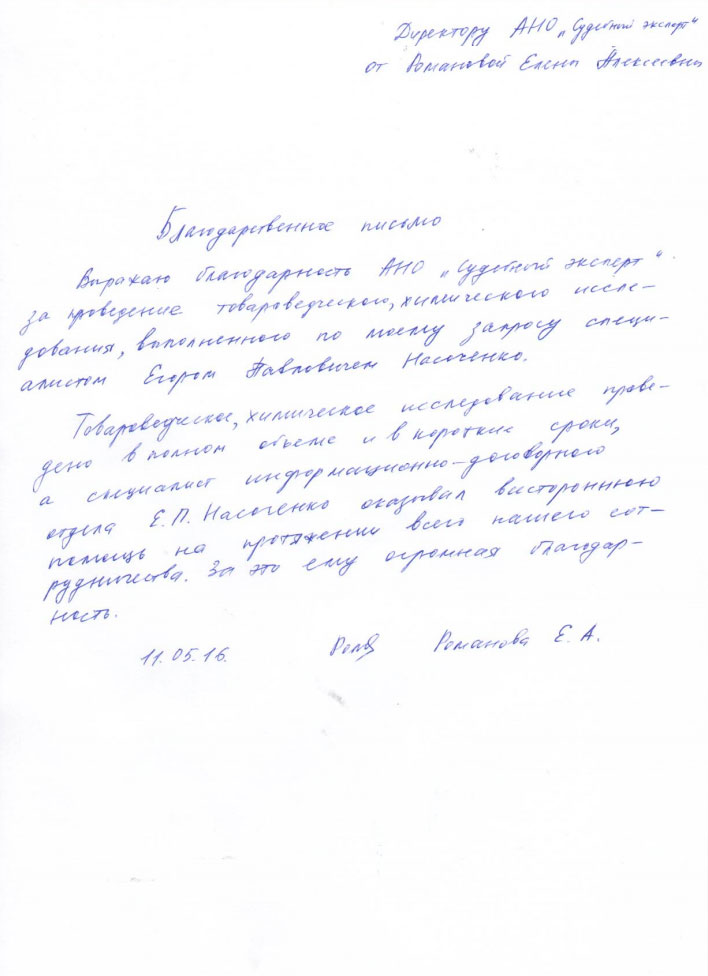 Директору АНО „Судебный эксперт“
от Романовой Елены Алексеевны
Благодарственное письмо
Выражаю благодарность АНО „Судебный эксперт“
за проведение товароведческого, химического иссле-
дования, выполненного по моему запросу специ-
алистом Егором Павловичем Насоченко.
Товароведческое, химическое исследование прове-
дено в полном объеме и в короткие сроки,
а специалист информационно-договорного
отдела Е.П. Насоченко оказывал всестороннюю
помощь на протяжении всего нашего сот-
рудничества. За это ему огромная благодар-
ность.
11.05.16. Романова Е. А.